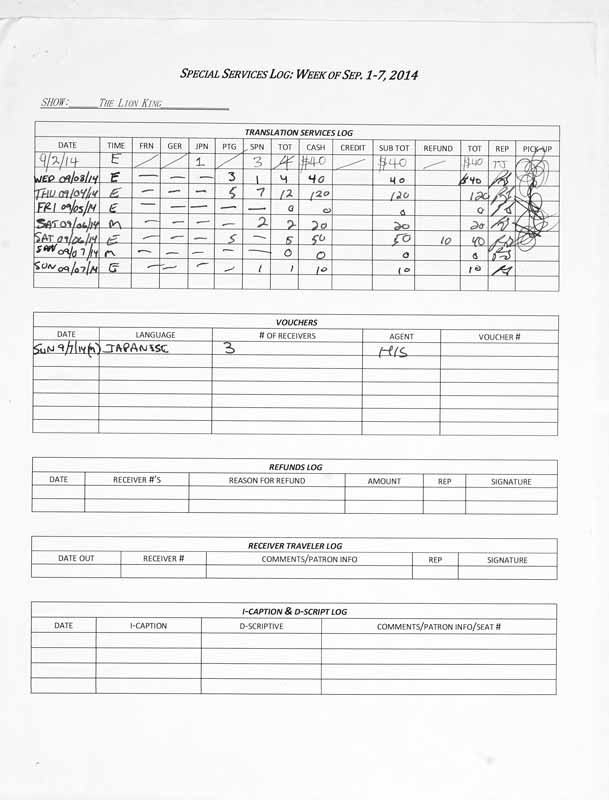 SPECIAL SERVICES LOG: WEEK OF SEP. 1-7, 2014
SHOW: THE LION KING
TRANSLATION SERVICES LOG
DATE TIME FRN GER JPN PTG SPN TOT CASH CREDIT SUB TOT REFUND TOT REP PICK-UP
9/2/14 E / / 1 / 3 4 $40 / $40 / $40 TJ
WED 09/03/14 E — — — 3 1 4 40 40 $40
THU 09/04/14 E — — — 5 7 12 120 120 120
FRI 09/05/14 E — — — — — 0 0 0 0
SAT 09/06/14 M — — — — 2 2 20 20 20
SAT 09/06/14 E — — — 5 — 5 50 50 10 40
SUN 09/07/14 M — — — — — 0 0 0 0
SUN 09/07/14 E — — — — 1 1 10 10 10
VOUCHERS
DATE LANGUAGE # OF RECEIVERS AGENT VOUCHER #
SUN 9/7/14(M) JAPANESE 3 HIS
REFUNDS LOG
DATE RECEIVER #'S REASON FOR REFUND AMOUNT REP SIGNATURE
RECEIVER TRAVELER LOG
DATE OUT RECEIVER # COMMENTS/PATRON INFO REP SIGNATURE
I-CAPTION & D-SCRIPT LOG
DATE I-CAPTION D-SCRIPTIVE COMMENTS/PATRON INFO/SEAT #